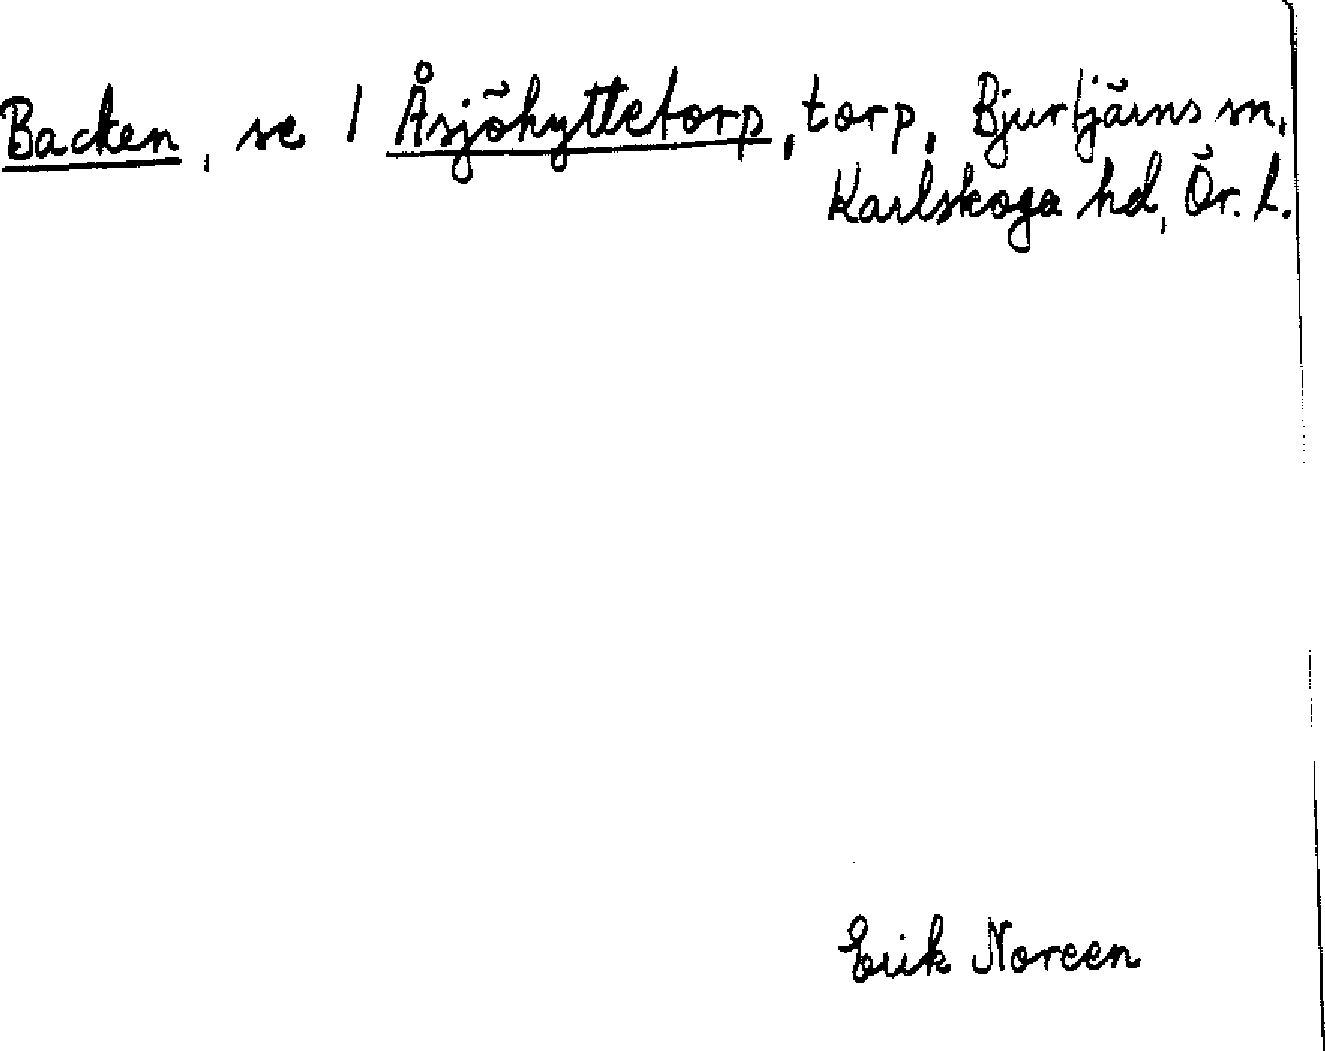 Backen, se 1 Åsjöhyttetorp, torp, Bjurtjärns sn,
Karlskoga hd, Ör. l.
Erik Noreen